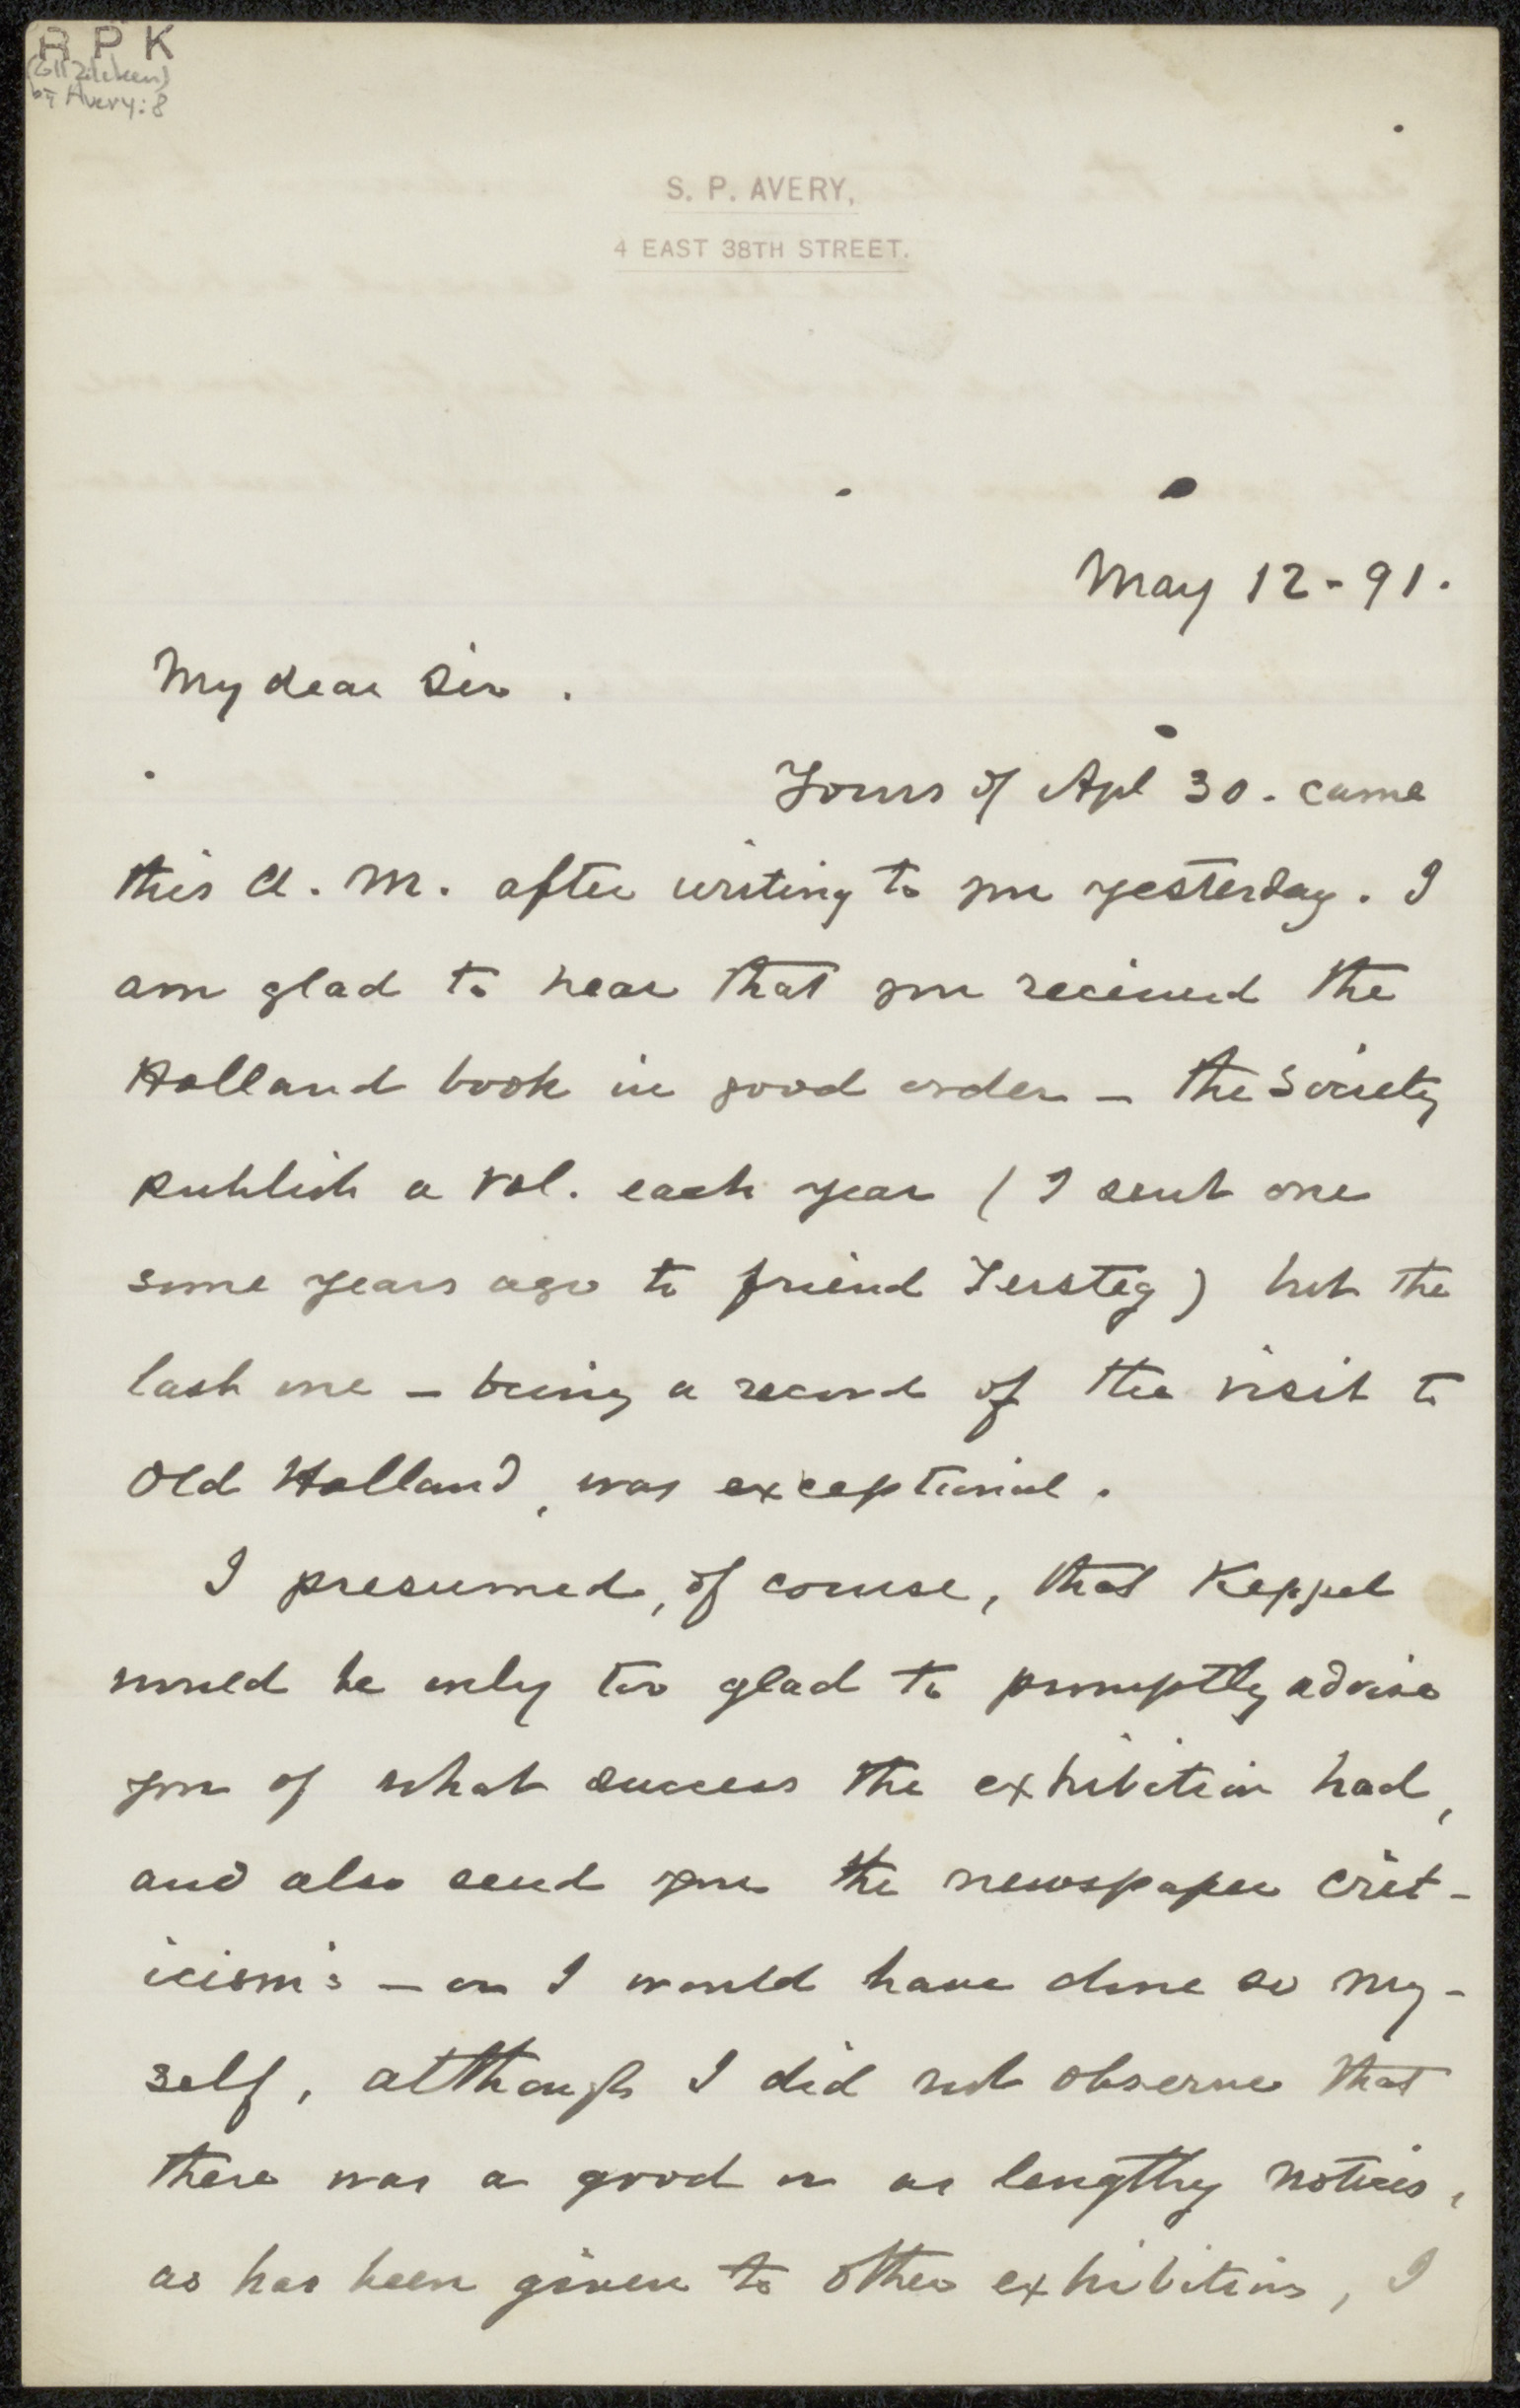 R P K
(Coll Zilcken)
br Avery: 8
S. P. AVERY,
4 EAST 38TH STREET.
May 12 - 91.
My dear Sir.
Yours of Apl 30. came
this A. M. after writing to you yesterday. I
am glad to hear that you received the
Holland book in good order - the Society
publish a vol. each year ( I sent one
some years ago to friend Tersteg ) but the
last one - being a record of the visit to
Old Holland, was exceptional.
I presumed, of course, that Keppel
would be only too glad to promptly advise
you of what success the exhibition had,
and also send you the newspaper crit-
icism's - or I would have done so my-
self, although I did not observe that
there was a good or as lengthy notices,
as has been given to other exhibitions, I